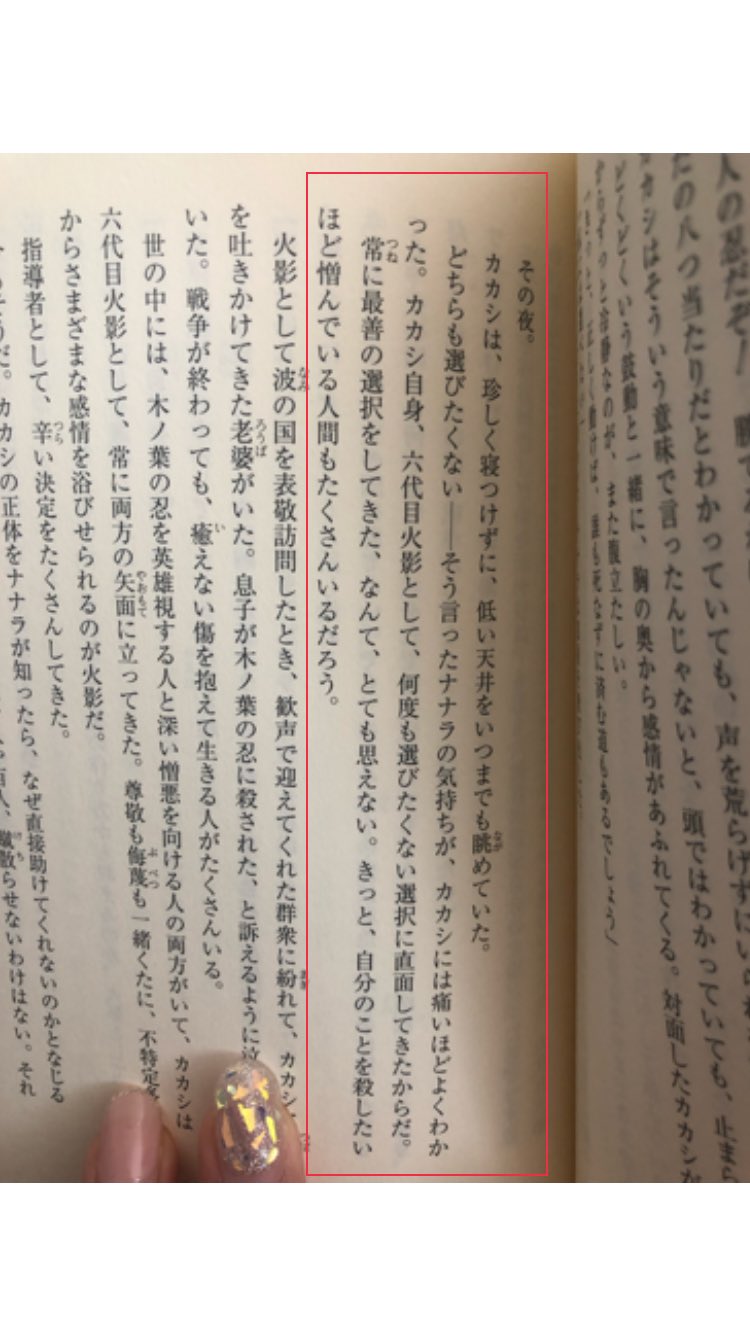 人の忍だぞ！
たの八つ当たりだとわかっていても、声を荒らげずにいられ
カカシはそういう意味で言ったんじゃないと、頭ではわかっていても、止まら
どくどくいう鼓動と一緒に、胸の奥から感情があふれてくる。対面したカカシが
ずっと冷静なのが、また腹立たしい。
正しく動けば、誰も死なずに済む道もあるでしょう
その夜。
カカシは、珍しく寝つけずに、低い天井をいつまでも眺めていた。
どちらも選びたくない――そう言ったナナラの気持ちが、カカシには痛いほどよくわか
った。カカシ自身、六代目火影として、何度も選びたくない選択に直面してきたからだ。
常に最善の選択をしてきた、なんて、とても思えない。きっと、自分のことを殺したい
ほど憎んでいる人間もたくさんいるだろう。
火影として波の国を表敬訪問したとき、歓声で迎えてくれた群衆に紛れて、カカシ
を吐きかけてきた老婆がいた。息子が木ノ葉の忍に殺された、と訴えるように泣
いた。戦争が終わっても、癒えない傷を抱えて生きる人がたくさんいる。
世の中には、木ノ葉の忍を英雄視する人と深い憎悪を向ける人の両方がいて、カカシは
六代目火影として、常に両方の矢面に立ってきた。尊敬も侮蔑も一緒くたに、不特定多
からさまざまな感情を浴びせられるのが火影だ。
指導者として、辛い決定をたくさんしてきた。
カカシの正体をナナラが知ったら、なぜ直接助けてくれないのかとなじる
蹴散らせないわけはない。それ